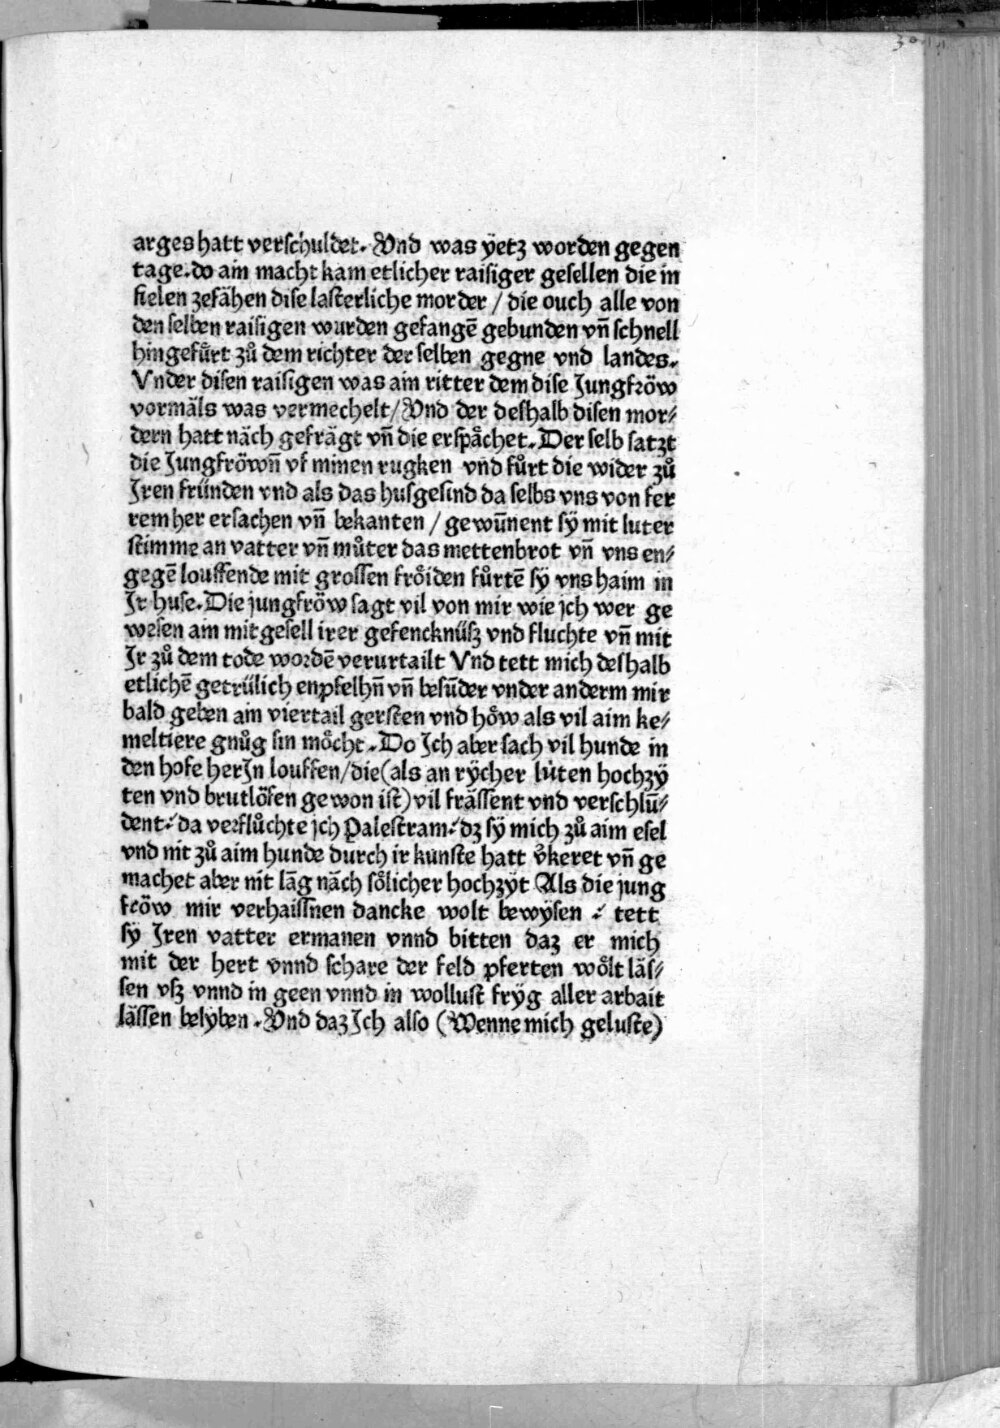 30
arges hatt verschuldet. Vnd was ÿetz worden gegen
tage. do ain macht kam etlicher raisiger gesellen die in
fielen zefähen dise lasterliche morder / die ouch alle von
den selben raisigen wurden gefangē gebunden vn̄ schnell
hingefu̇rt zů dem richter der selben gegne vnd landes.
Vnder disen raisigen was ain ritter dem dise Jungfröw
vormäls was vermechelt / Vnd der deshalb disen mor⸗
dern hatt näch gefrägt vn̄ die erspåchet. Der selb satzt
die Jungfröwn̄ vf minen rugken vnd fůrt die wider zů
Jren frúnden vnd als das husgesind da selbs vns von fer
rem her ersachen vn̄ bekanten / gewūnent sÿ mit luter
stimme an vatter vn̄ můter das mettenbrot vn̄ vns en⸗
gegē louffende mit grossen fröiden fůrtē sÿ vns haim in
Jr huse. Die jungfröw sagt vil von mir wie jch wer ge
wesen ain mitgesell irer gefencknúsz vnd fluchte vn̄ mit
Jr zů dem tode wordē verurtailt Vnd tett mich deshalb
etlichē getrúlich enpfelhn̄ vn̄ besūder vnder anderm mir
bald geben ain viertail gersten vnd höw als vil aim ke⸗
meltiere gnůg sin möcht. Do Jch aber sach vil hunde in
den hofe her Jn louffen / die (als an rÿcher lúten hochzÿ
ten vnd brutlöfen gewon ist) vil frässent vnd verschlū⸗
dent: da verflůchte jch Palestram: dz sÿ mich zů aim esel
vnd nit zů aim hunde durch ir kunste hatt v̊keret vn̄ ge
machet aber nit lāg näch sölicher hochzÿt Als die jung
fröw mir verhaissnen dancke wolt bewÿsen : tett
sÿ Jren vatter ermanen vnnd bitten daz er mich
mit der hert vnnd schare der feld pferten wölt läs⸗
sen vsz vnnd in geen vnnd in wollust frÿg aller arbait
lässen belÿben. Vnd daz Jch also (Wenne mich geluste)